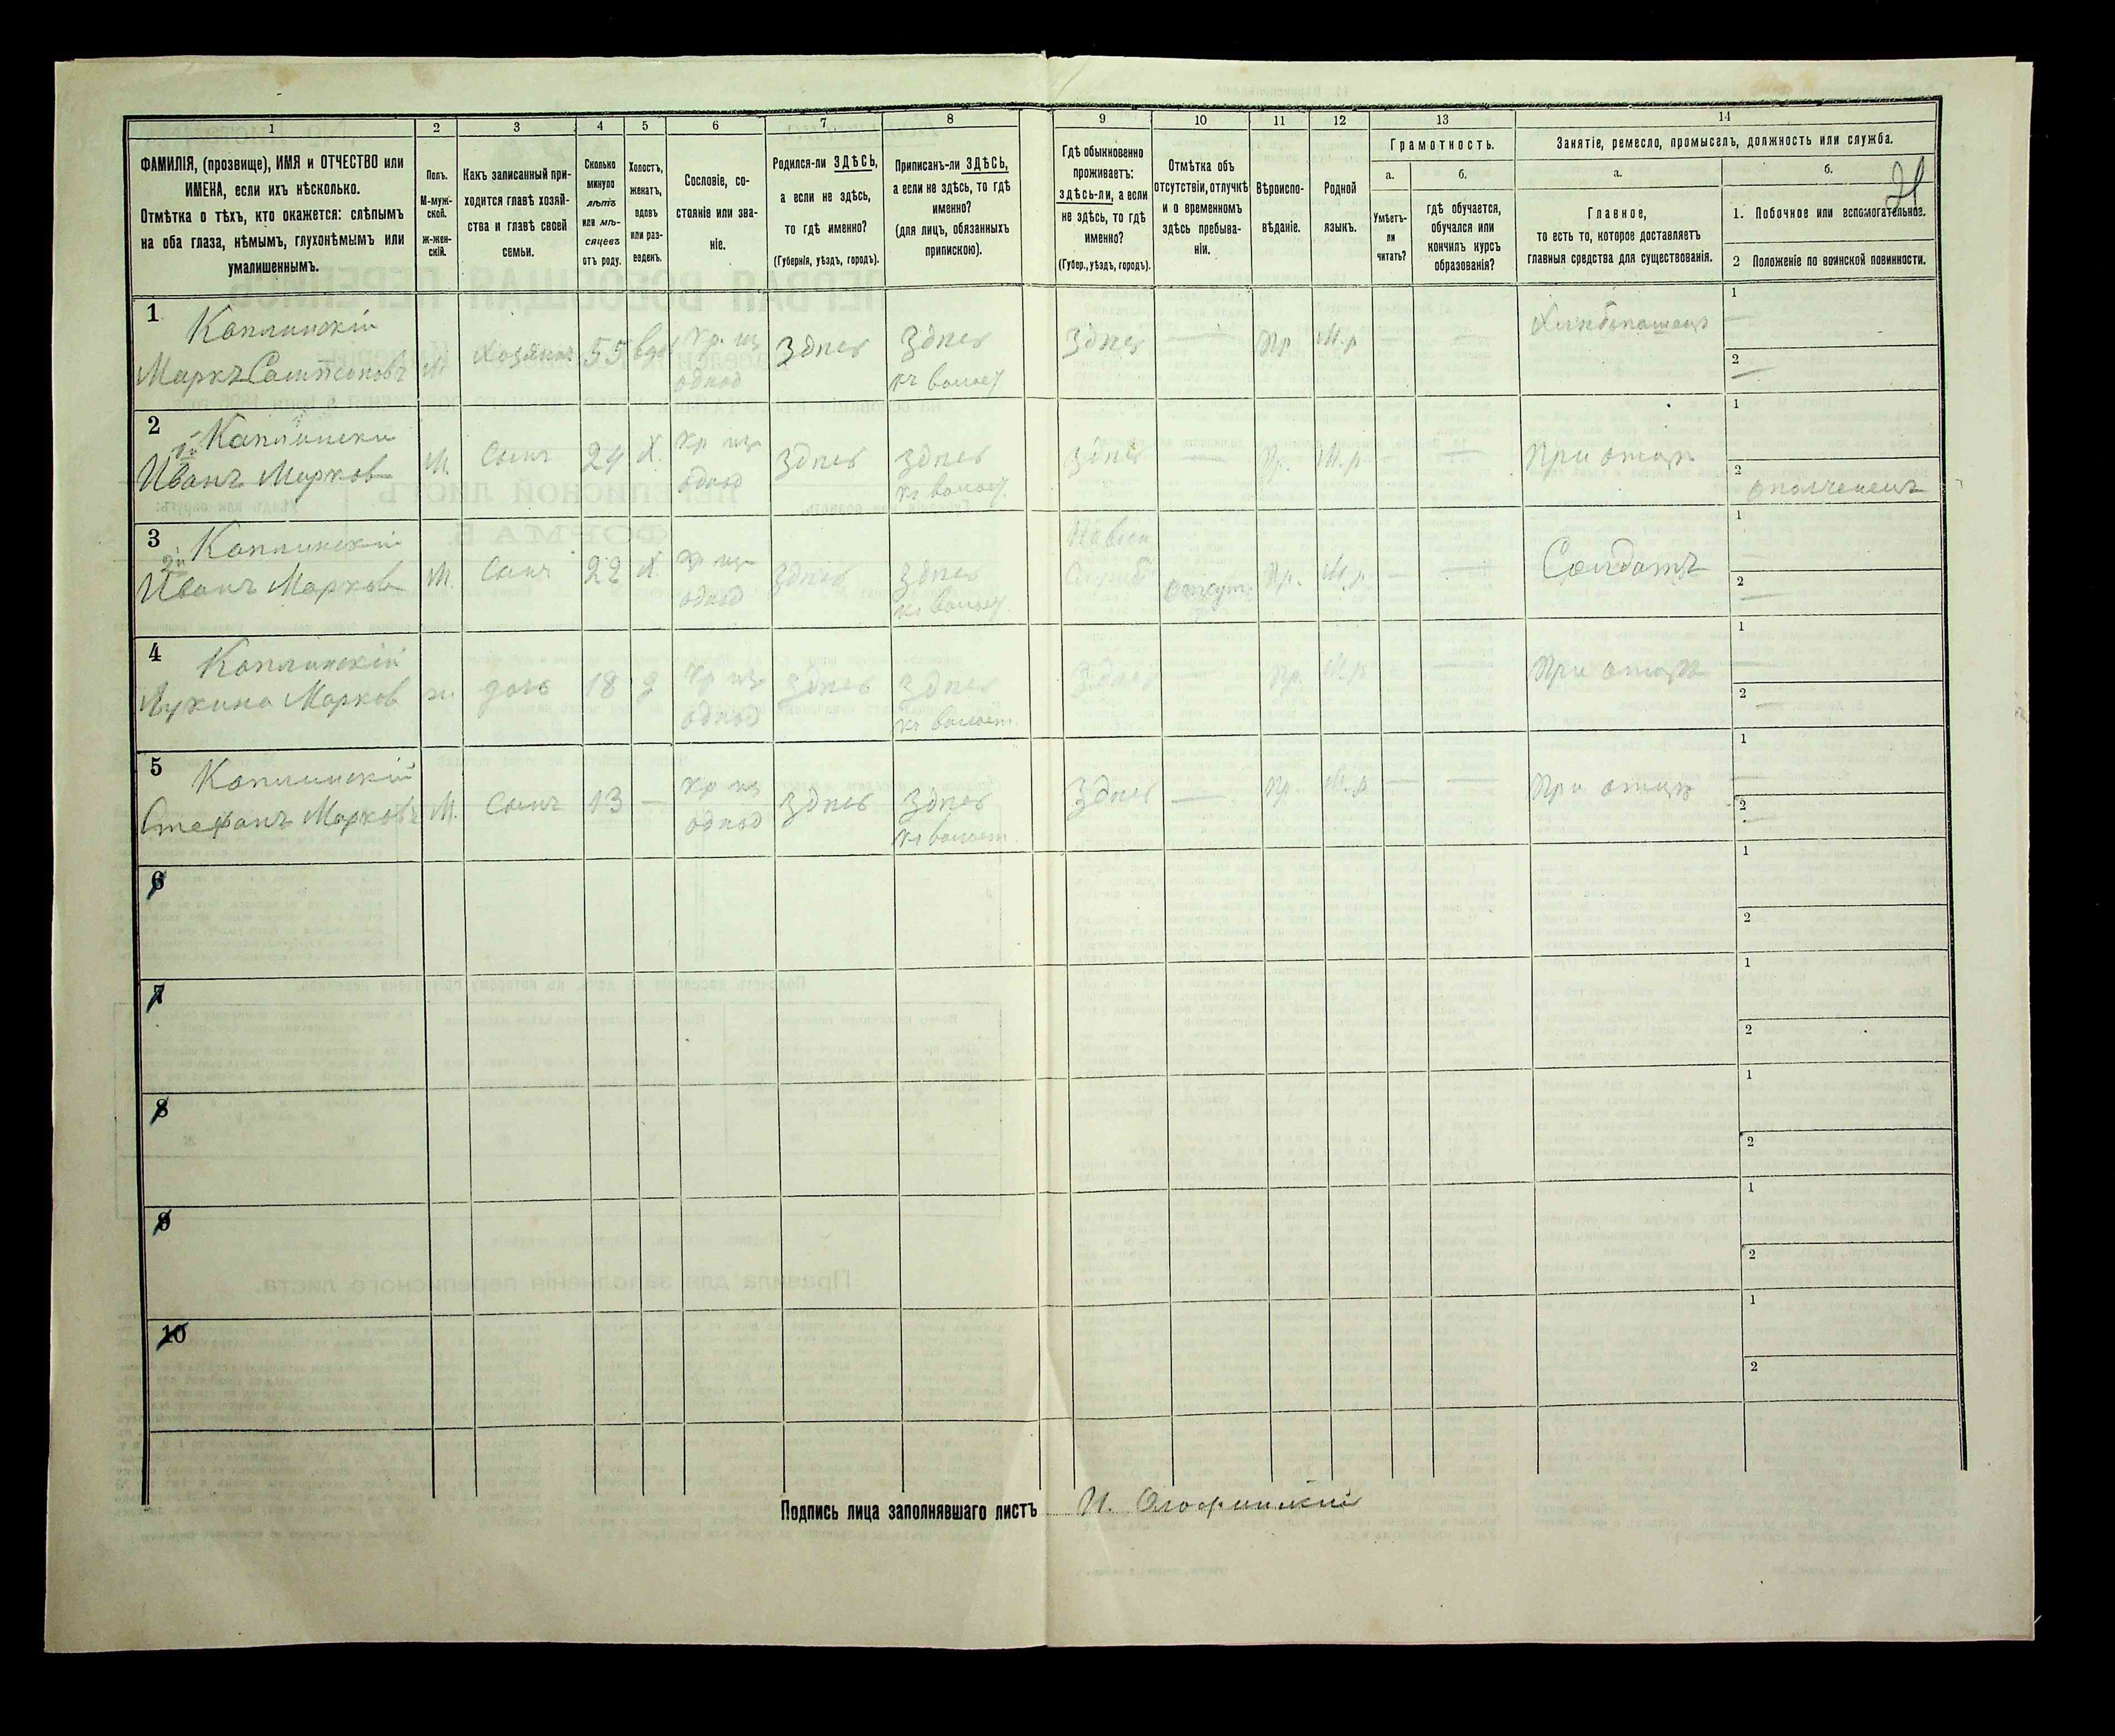 1 2 3 4 5 6 7 8 9 10 11 12 13 14
ФАМИЛІЯ, (прозвище), ИМЯ и ОТЧЕСТВО или
ИМЕНА, если ихъ нѣсколько.
Отмѣтка о тѣхъ, кто окажется: слѣпымъ
на оба глаза, нѣмымъ, глухонѣмымъ или
умалишеннымъ.
Полъ.
М-муж-
ской.
Ж-жен-
скій.
Какъ записанный при-
ходится главѣ хозяй-
ства и главѣ своей
семьи.
Сколько
минуло
лѣтъ
или мѣ-
сяцевъ
отъ роду.
Холостъ,
женатъ,
вдовъ
или раз-
веденъ.
Сословіе, со-
стояніе или зва-
ніе.
Родился-ли ЗДѢСЬ,
а если не здѣсь,
то гдѣ именно?
(Губернія, уѣздъ, городъ).
Приписанъ-ли ЗДѢСЬ,
а если не здѣсь, то гдѣ
именно?
(для лицъ, обязанныхъ
припискою).
Гдѣ обыкновенно
проживаетъ:
здѣсь-ли, а если
не здѣсь, то гдѣ
именно?
(Губер., уѣздъ, городъ).
Отмѣтка объ
отсутствіи, отлучкѣ
и о временномъ
здѣсь пребыва-
ніи.
Вѣроиспо-
вѣданіе.
Родной
языкъ.
Грамотность.
а.
Умѣетъ-
ли
читать?
б.
гдѣ обучается,
обучался или
кончилъ курсъ
образованія?
Занятіе, ремесло, промыселъ, должность или служба.
а.
Главное,
то есть то, которое доставляетъ
главныя средства для существованія.
б.
1. Побочное или вспомогательное.
2 Положеніе по воинской повинности.
1 Каплинскій
Маркъ Сампсоновъ М Хозяинъ 55 вдов Кр. из Здѣсь Здѣсь Здѣсь — Пр М.р — — Хлѣбопашец 1 —
однод къ волост 2 —
2 Каплински
1й
Иванъ Марков М. Сынъ 24 Х. Кр из Здѣсь Здѣсь Здѣсь — Пр. М.р — — При отцѣ 1
однод къ волост 2 ополченецъ
3 Каплинскій
2й
Иванъ Марков М. Сынъ 22 Х. Кр из Здѣсь Здѣсь отсут Пр. М.р — — Солдатъ 1 —
однод къ волост 2 —
4 Каплинскій
Марков ж. дочь 18 Кр из Здѣсь Здѣсь Здѣсь — Пр. М.р — — При отцѣ 1 —
однод къ волост. 2 —
5 Каплинскій
Стефанъ Марковъ М. Сынъ 13 — Кр из Здѣсь Здѣсь Здѣсь — Пр. М.р — — При отцѣ 1 —
однод къ волост. 2 —
6 1
2
7 1
2
8 1
2
9 1
2
10 1
2
Подпись лица заполнявшаго листъ